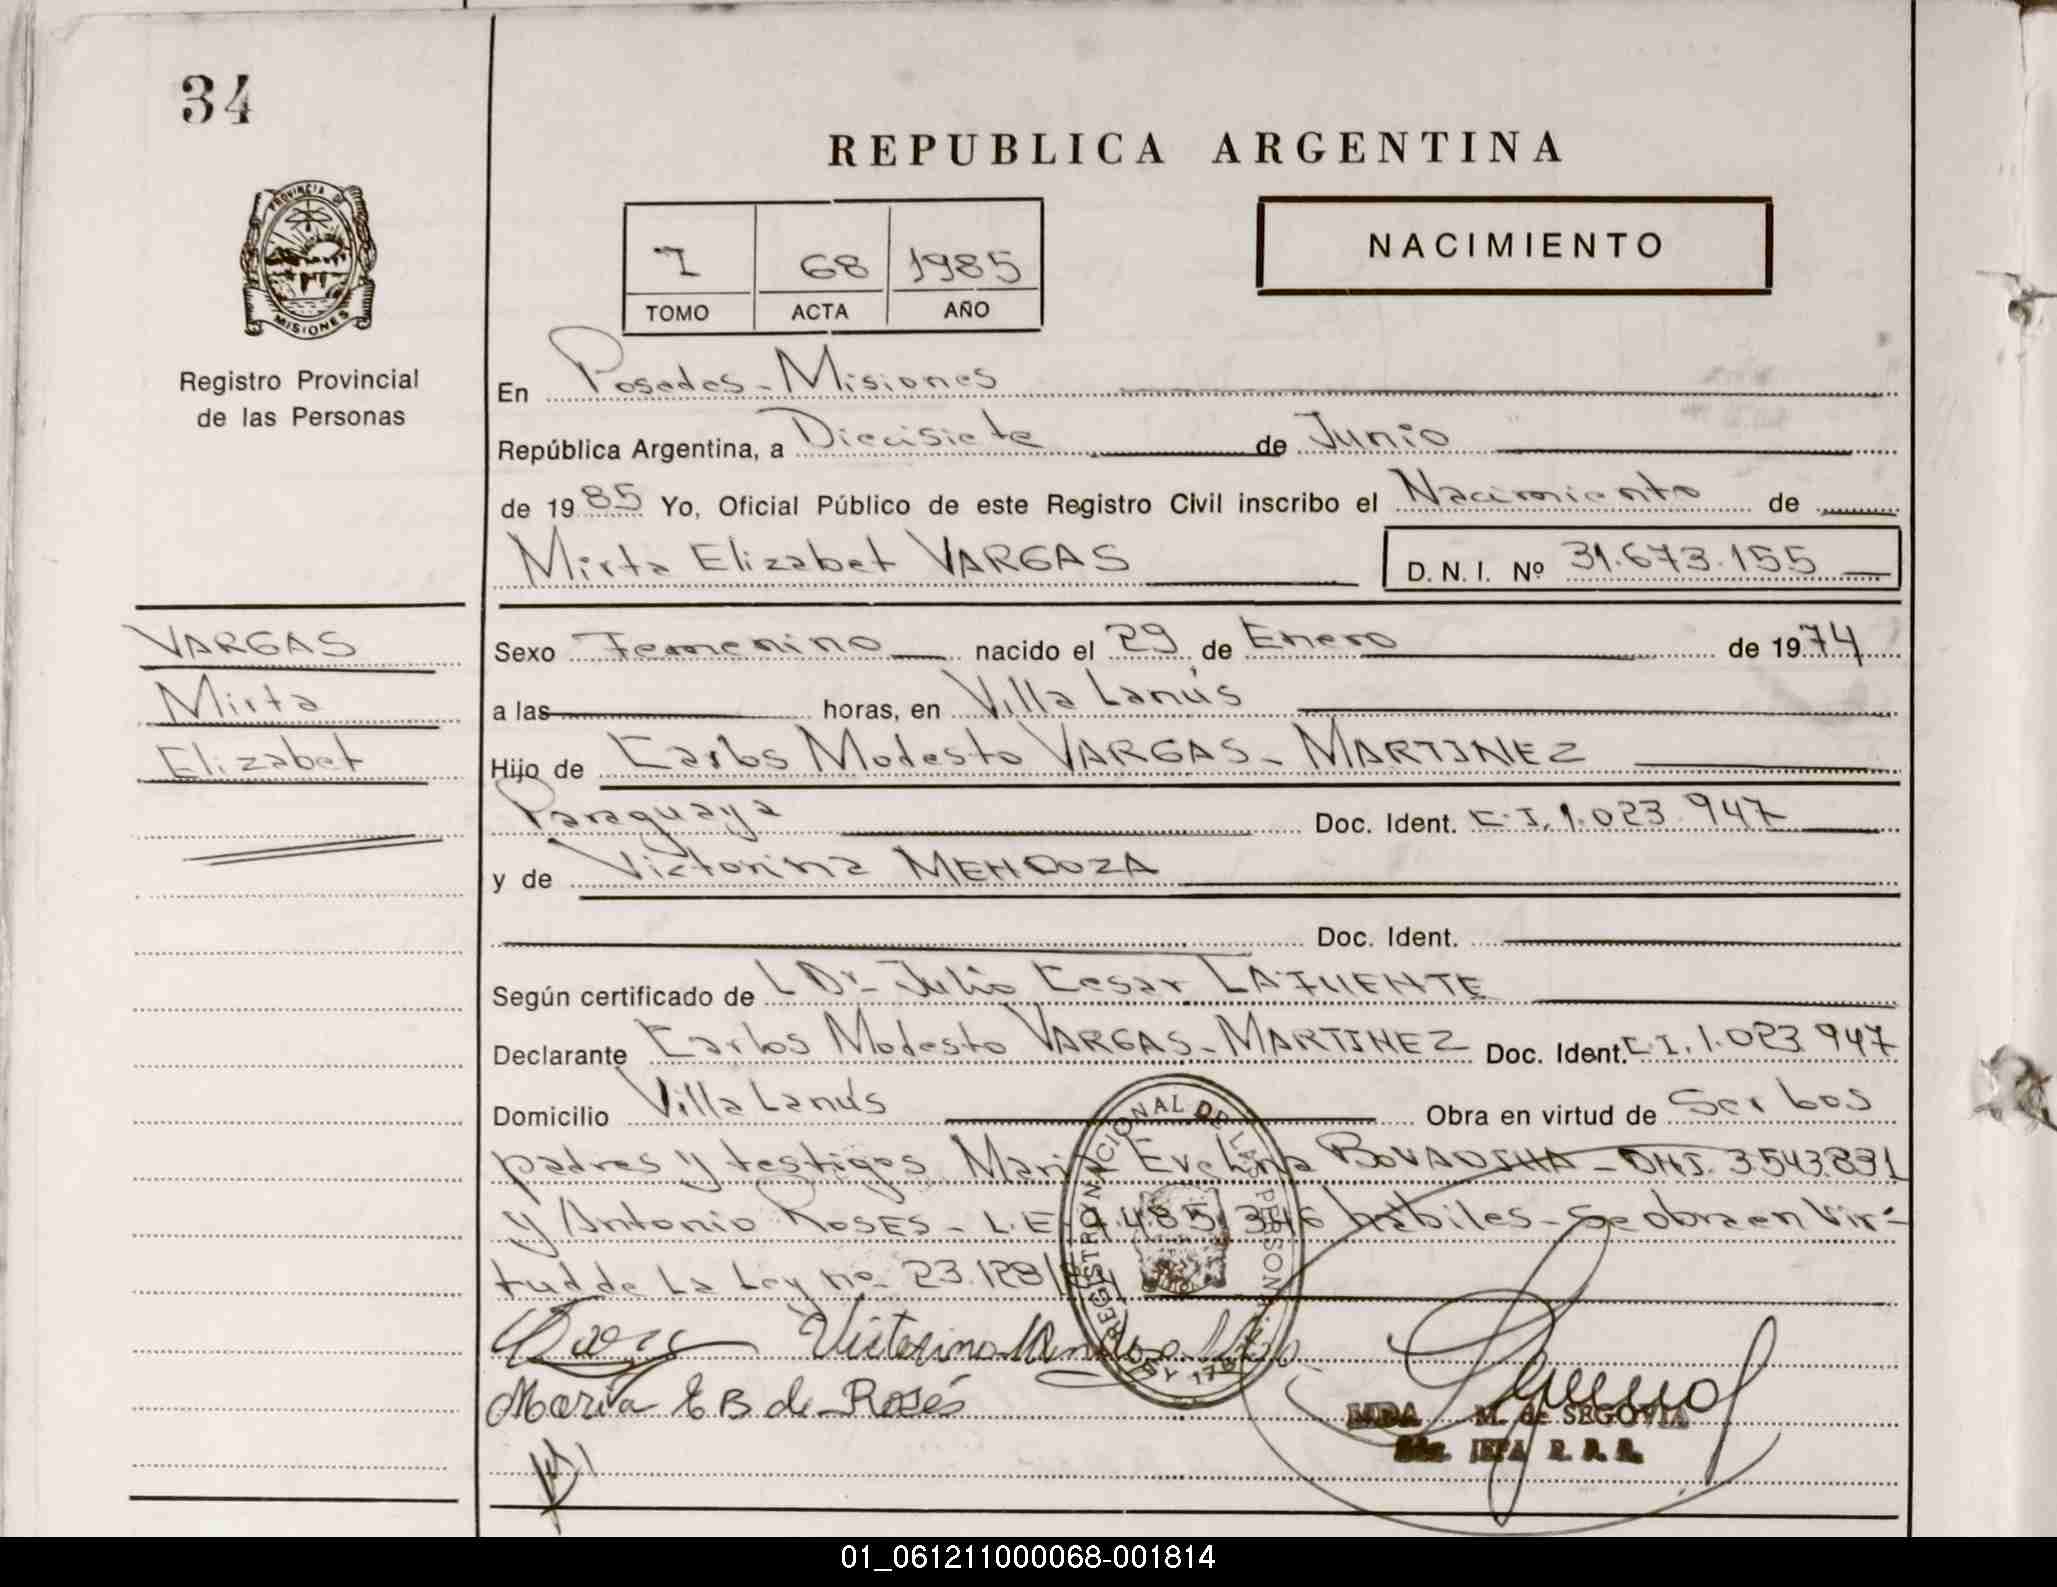 34
REPUBLICA ARGENTINA
PROVINCIA DE
MISIONES
Registro Provincial
de las Personas
I 68 1985
TOMO ACTA AÑO
NACIMIENTO
En Posadas - Misiones
República Argentina, a Diecisiete de Junio
de 1985 Yo, Oficial Público de este Registro Civil inscribo el Nacimiento de
Mirta Elizabet VARGAS D. N. I. Nº 31.673.155
VARGAS
Mirta
Elizabet
Sexo Femenino nacido el 29 de Enero de 1974
a las horas, en Villa Lanús
Hijo de Carlos Modesto VARGAS - MARTINEZ
Paraguaya Doc. Ident. C.I. 1.023.947
y de Victorina MENDOZA
Doc. Ident.
Según certificado de L Dr. Julio Cesar LAFUENTE
Declarante Carlos Modesto VARGAS - MARTINEZ Doc. Ident. C.I. 1.023.947
Domicilio Villa Lanús Obra en virtud de Ser los
padres y testigos Maria Evelina - DNI. 3543831
y Antonio ROSES - L.E. habiles - Se obra en Vir-
tud de La Ley nº 23.128/84
REGISTRO NACIONAL DE LAS PERSONAS
Victorina Mendoza
Maria E B de Rosés
M. de SEGOVIA
01_061211000068-001814